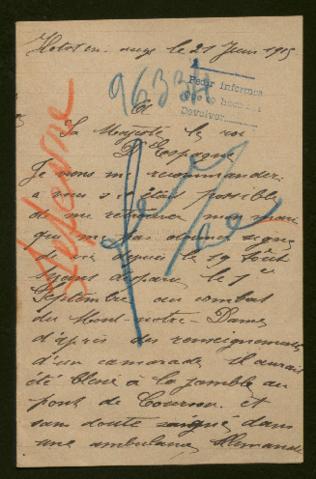 Hotot en auge le 21 Juin 1915
9633H
Pedir informes
Devolver
A
Sa Majesté le roi
D'Espagne
Je vous me recommander
a vous s'il était possible
de me retrouver mon mari
qui a pas donner signe
de vie depuis le 19 Août
disparu le 1er
Septembre au combat
du Mont-notre-Dame
d'après des renseignements
d'un camarade il aurait
été blessé à la jambe au
pont de et
sans doute soigné dans
une ambulance allemande